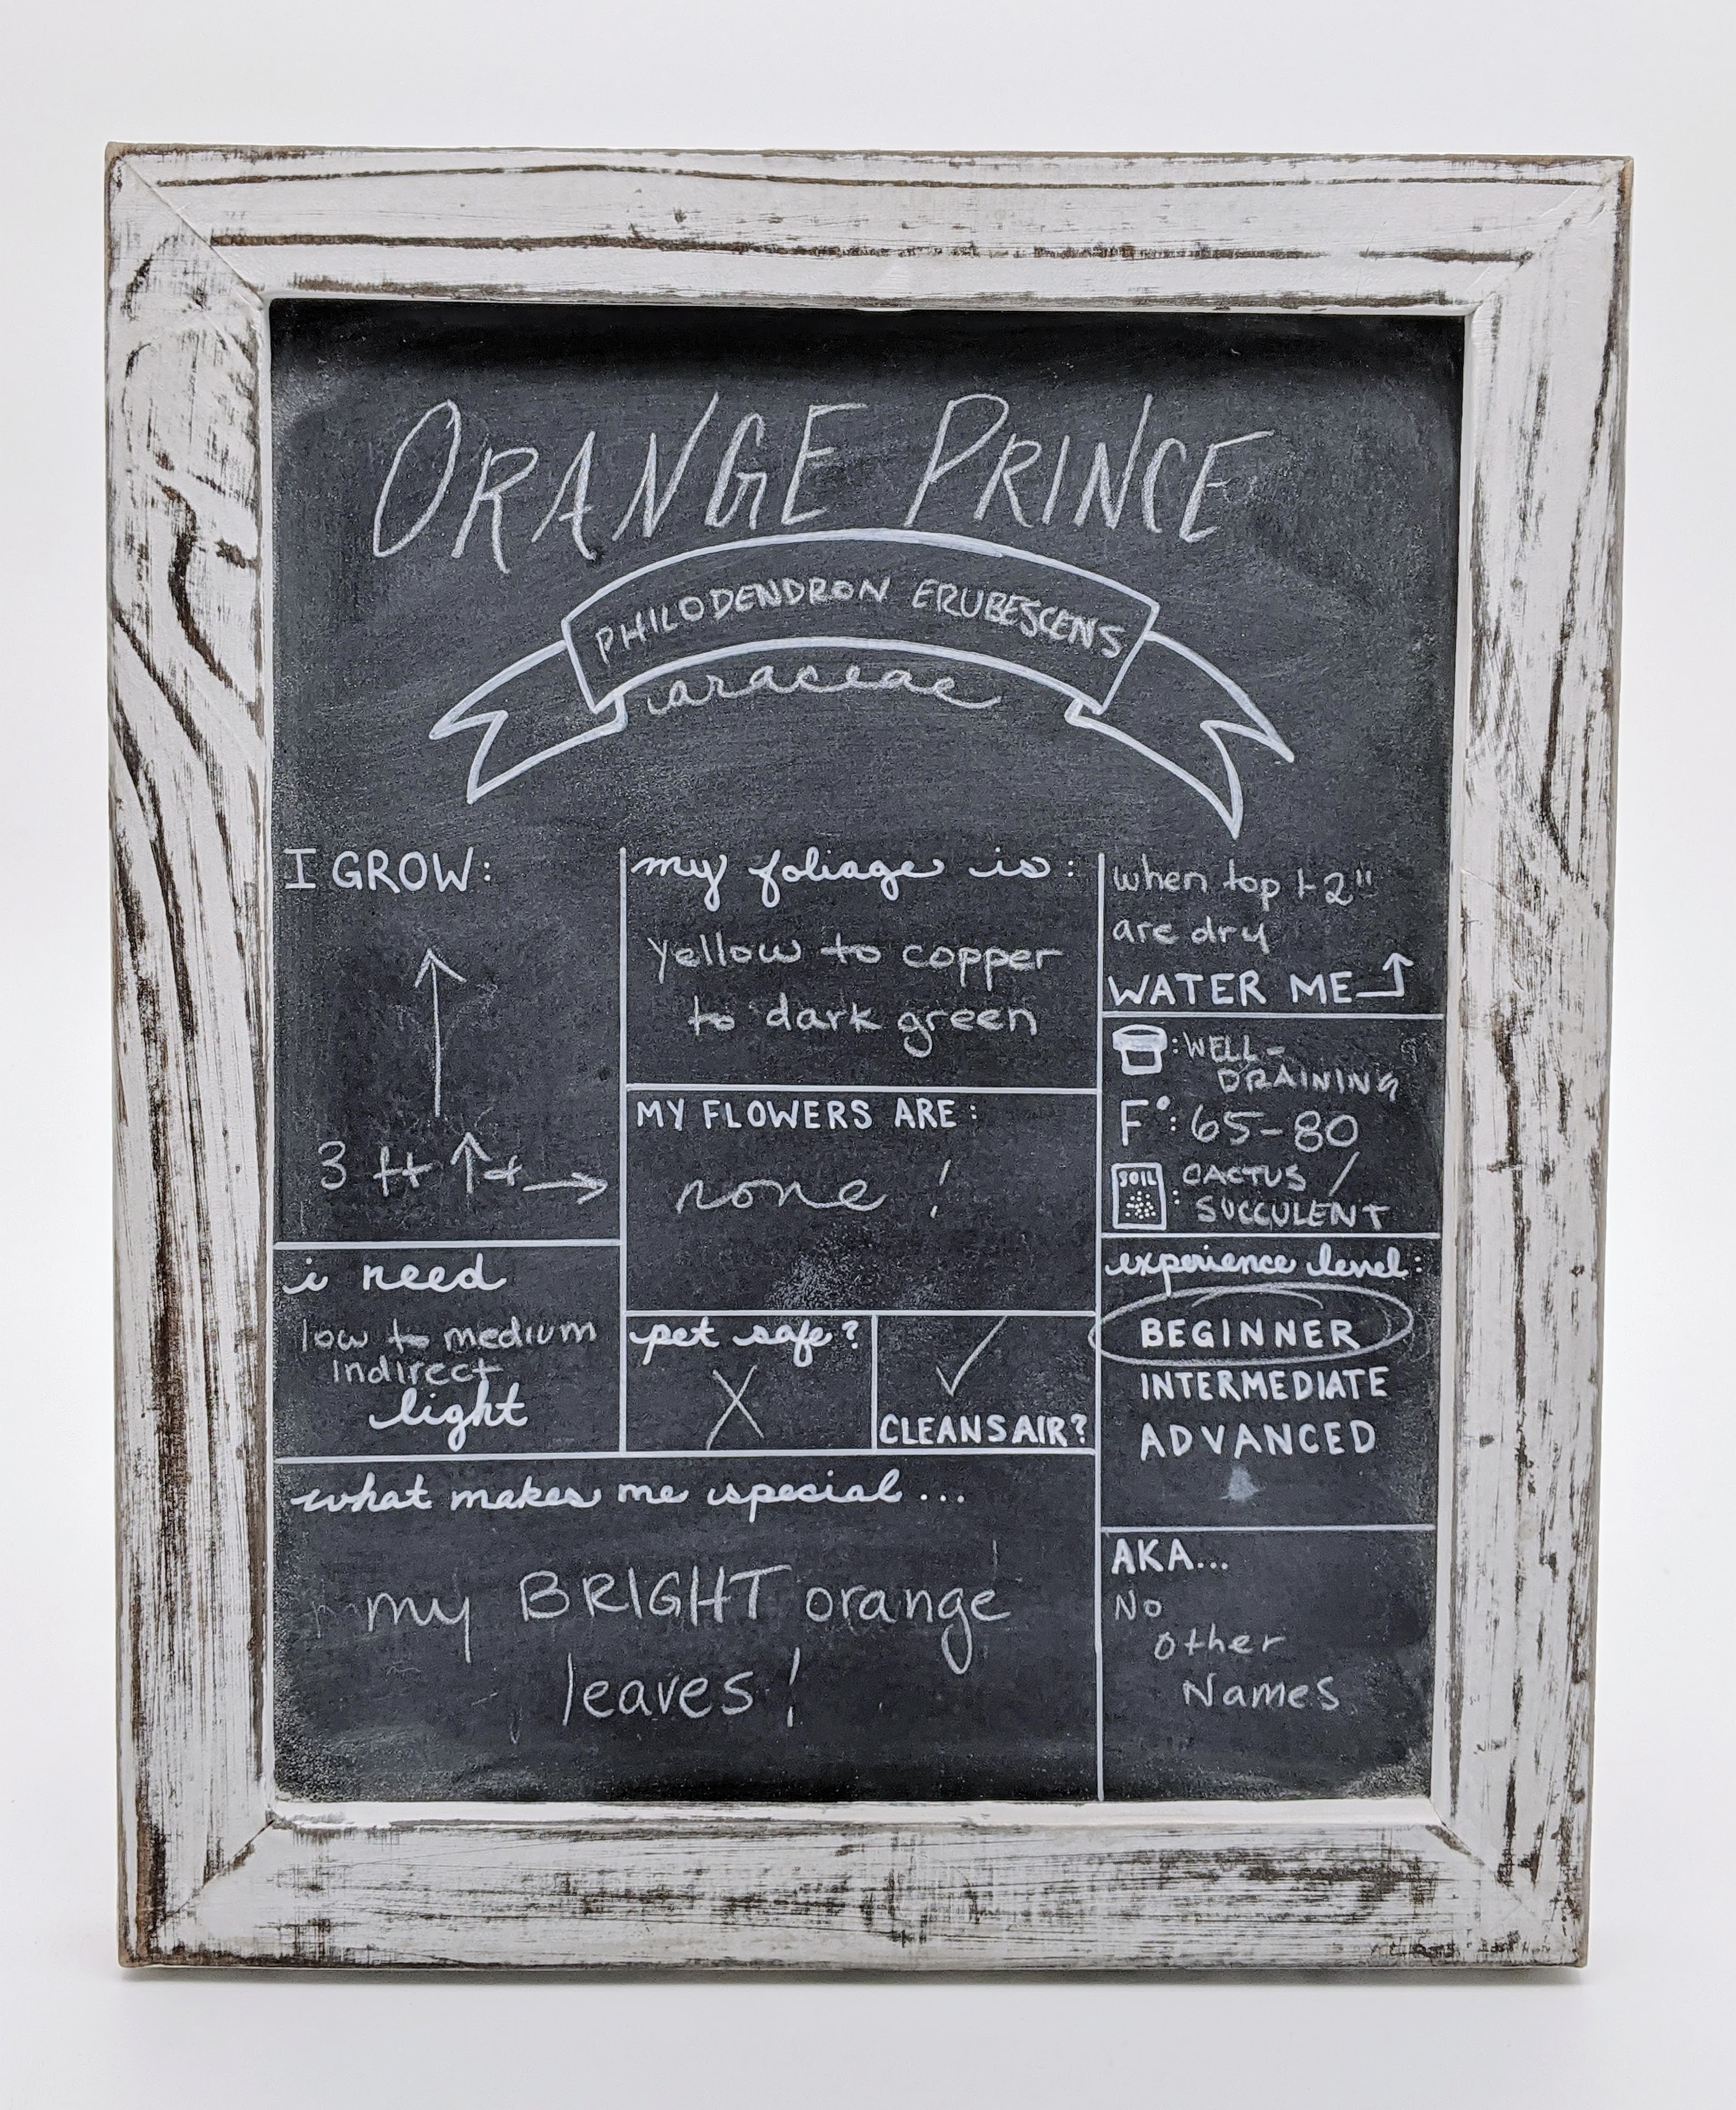 ORANGE PRINCE
PHILODENDRON ERUBESCENS
araceae
I GROW:
3 ft ↑ + →
i need
low to medium
indirect
light
my foliage is:
yellow to copper
to dark green
MY FLOWERS ARE:
none!
pet safe?
X
✓
CLEANS AIR?
what makes me special...
my BRIGHT orange
leaves!
when top 1-2"
are dry
WATER ME
: WELL-
DRAINING
F°: 65-80
SOIL
: CACTUS /
SUCCULENT
experience level:
BEGINNER
INTERMEDIATE
ADVANCED
AKA...
No
other
Names